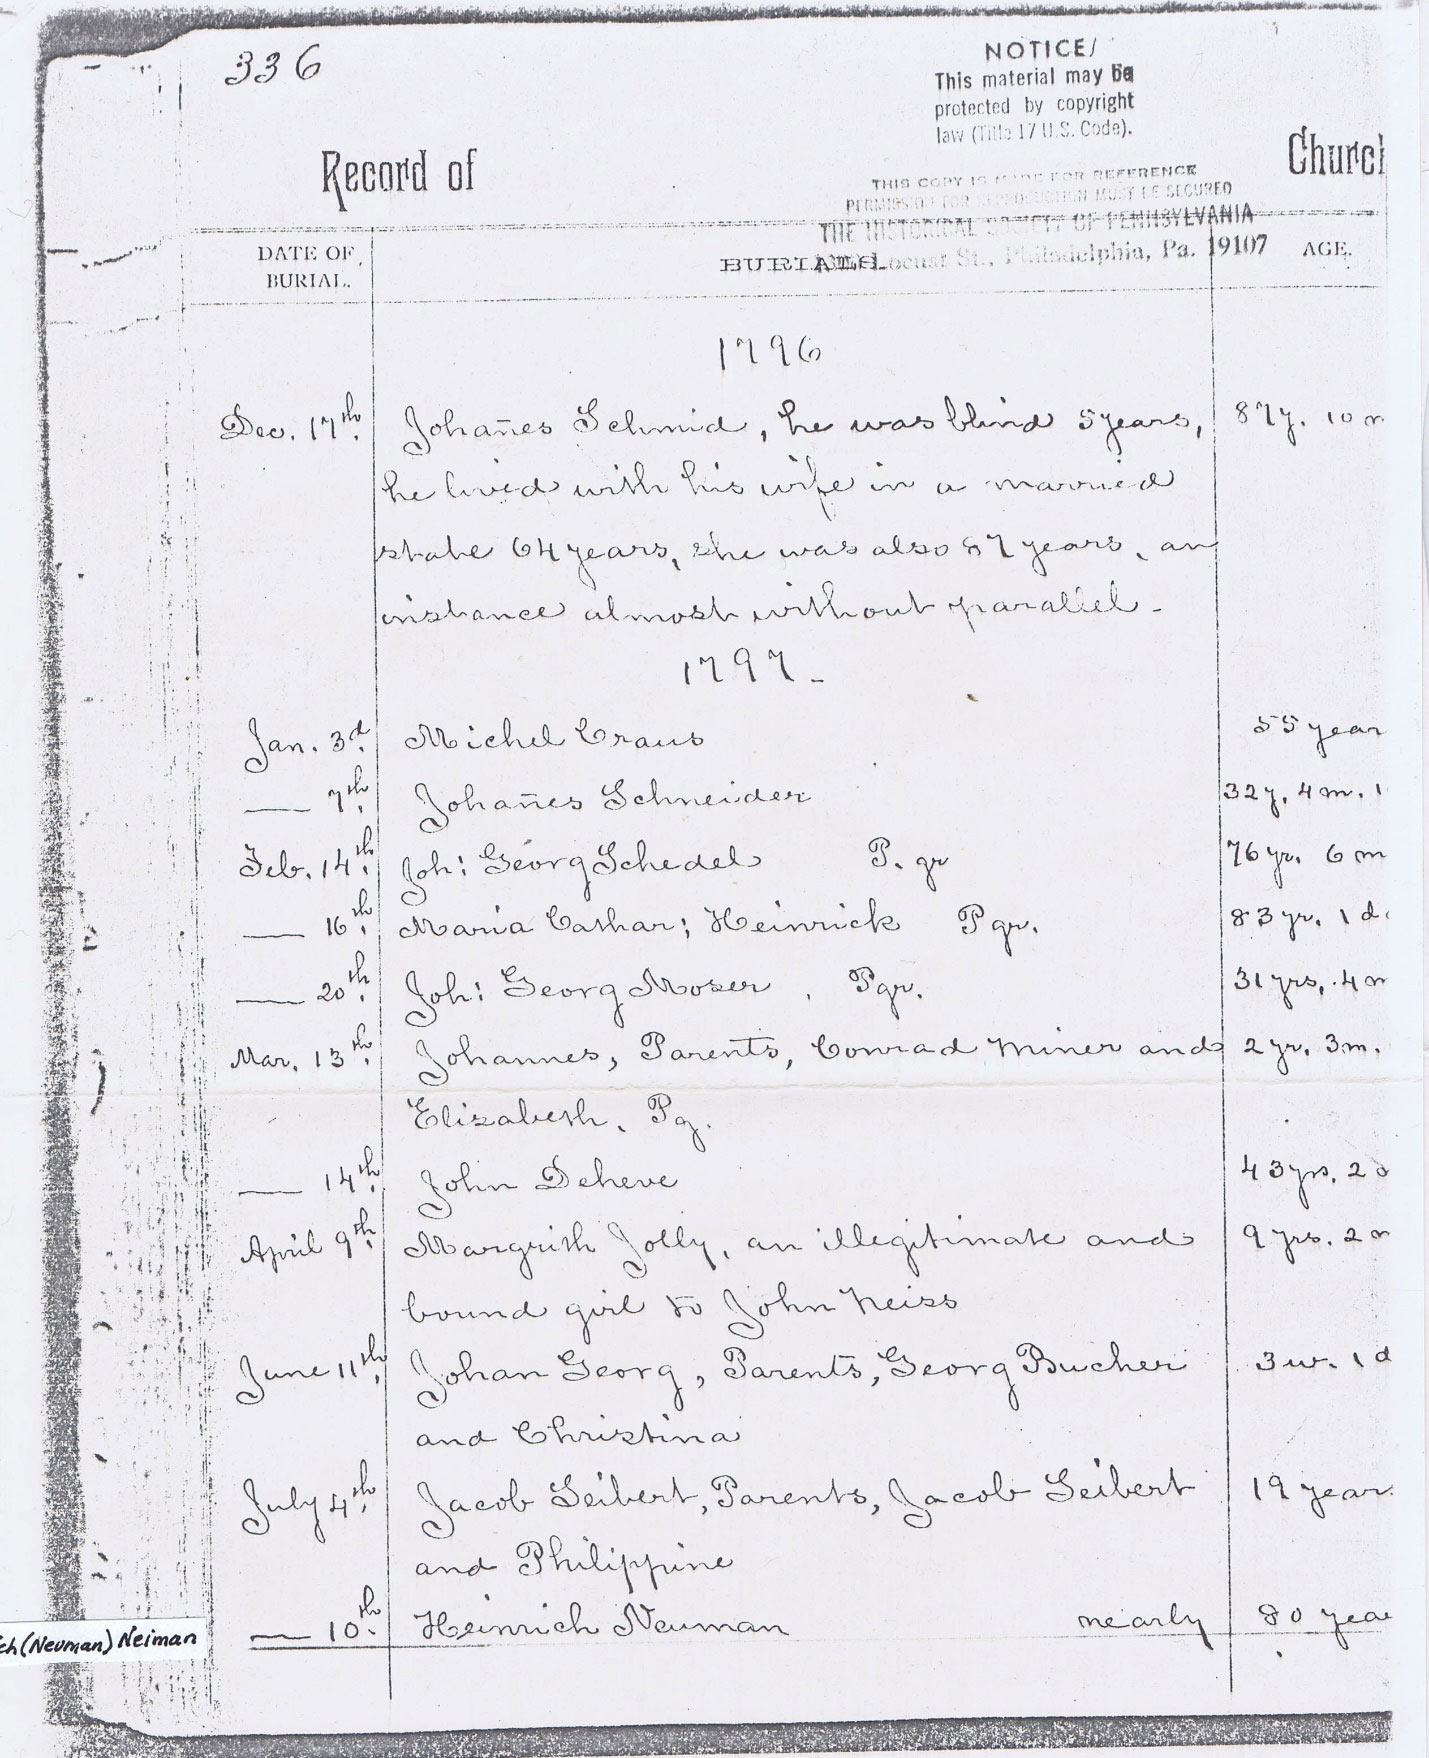 336
NOTICE/
This material may be
protected by copyright
law (Title 17 U.S. Code).
Record of
Church
THIS COPY IS MADE FOR REFERENCE
PERMISSION FOR REPRODUCTION MUST BE SECURED
THE HISTORICAL SOCIETY OF PENNSYLVANIA
Locust St., Philadelphia, Pa. 19107
DATE OF BURIAL.
BURIALS.
AGE.
1796
Dec. 17th. Johañes Schmid, he was blind 5 years, 87y. 10 m
he lived with his wife in a married
state 64 years, she was also 87 years, an
instance almost without parallel.
1797.
Jan. 3d. Michel Craus 55 year
— 7th. Johañes Schneider 32 y. 4 m. 1
Feb. 14th. Joh: Georg Schedel P. gr 76 yr. 6 m
— 16th. Maria Cathar: Heinrick P gr. 83 yr. 1 d
— 20th. Joh: Georg Moser, Pgr. 31 yrs. 4 m
Mar. 13th. Johannes, Parents, Conrad Miner and 2 yr. 3 m.
Elizabeth. Pg.
— 14th. John Deheve 43 yrs. 2
April 9th. Margrith Jolly, an illegitimate and 9 yrs. 2 m
bound girl to John Neiss
June 11th. Johan Georg, Parents, Georg Bucher 3 w. 1 d
and Christina
July 4th. Jacob Seibert, Parents, Jacob Seibert 19 year
and Philippine
— 10th. Heinrich Neuman nearly 80 yea
ich (Neuman) Neiman